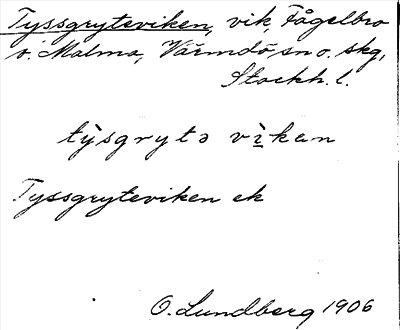 Tyssgryteviken, vik, Fågelbro
o. Malma, Värmdö sn o. skg,
Stockh. l.
ty̌sgrytə vìkan
Tyssgryteviken ek
O. Lundberg 1906